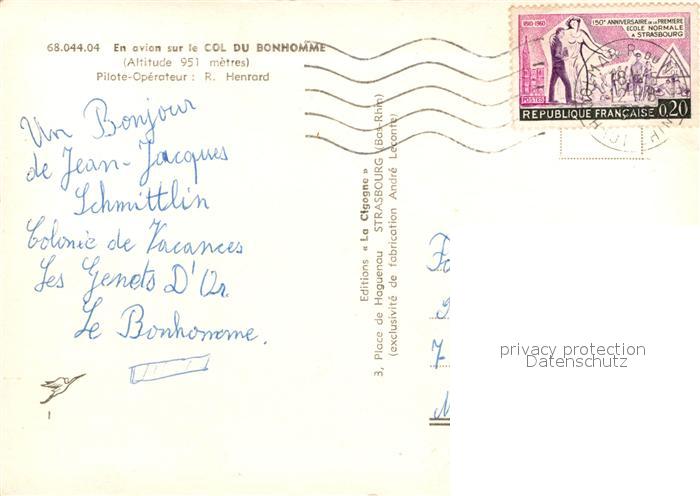 68.044.04 En avion sur le COL DU BONHOMME
(Altitude 951 mètres)
Pilote-Opérateur : R. Henrard
Un Bonjour
de Jean-Jacques
Schmittlin
Colonie de Vacances
Les Genets D'Or
Le Bonhomme.
1
Editions « La Cigogne »
3, Place de Haguenau STRASBOURG (Bas-Rhin)
(exclusivité de fabrication André Leconte)
1810-1960
150e ANNIVERSAIRE DE LA PREMIÈRE
ECOLE NORMALE
A STRASBOURG
POSTES
REPUBLIQUE FRANÇAISE 0,20
7
M
privacy protection
Datenschutz